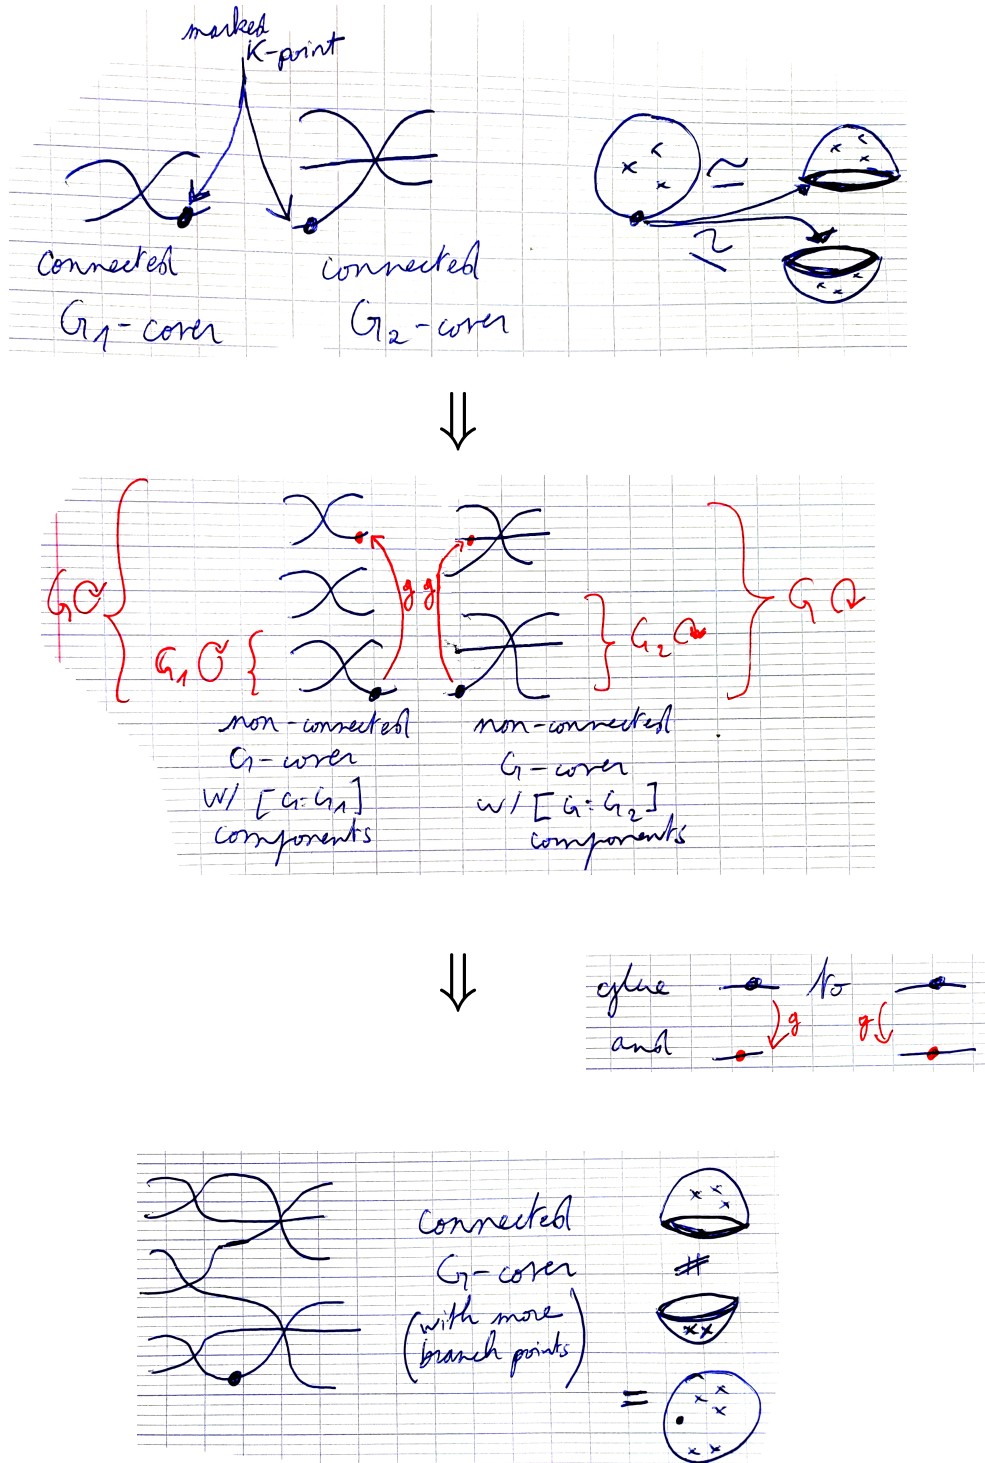 marked
K-point
connected
G₁-cover
connected
G₂-cover
≃
≃
⇓
G
G₁
g g
G₂
G
non-connected
G-cover
w/ [G:G₁]
components
non-connected
G-cover
w/ [G:G₂]
components
⇓
glue to
g g
and
connected
G-cover
(with more
branch points)
#
=